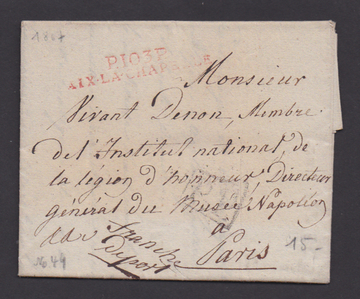 1807
P.103.P.
AIX-LA-CHAPELLE
Monsieur
Vivant Denon, Membre
de l'Institut national, de
la légion d'honneur, Directeur
général du Musée Napoléon
à
Paris
franche
de port
15-